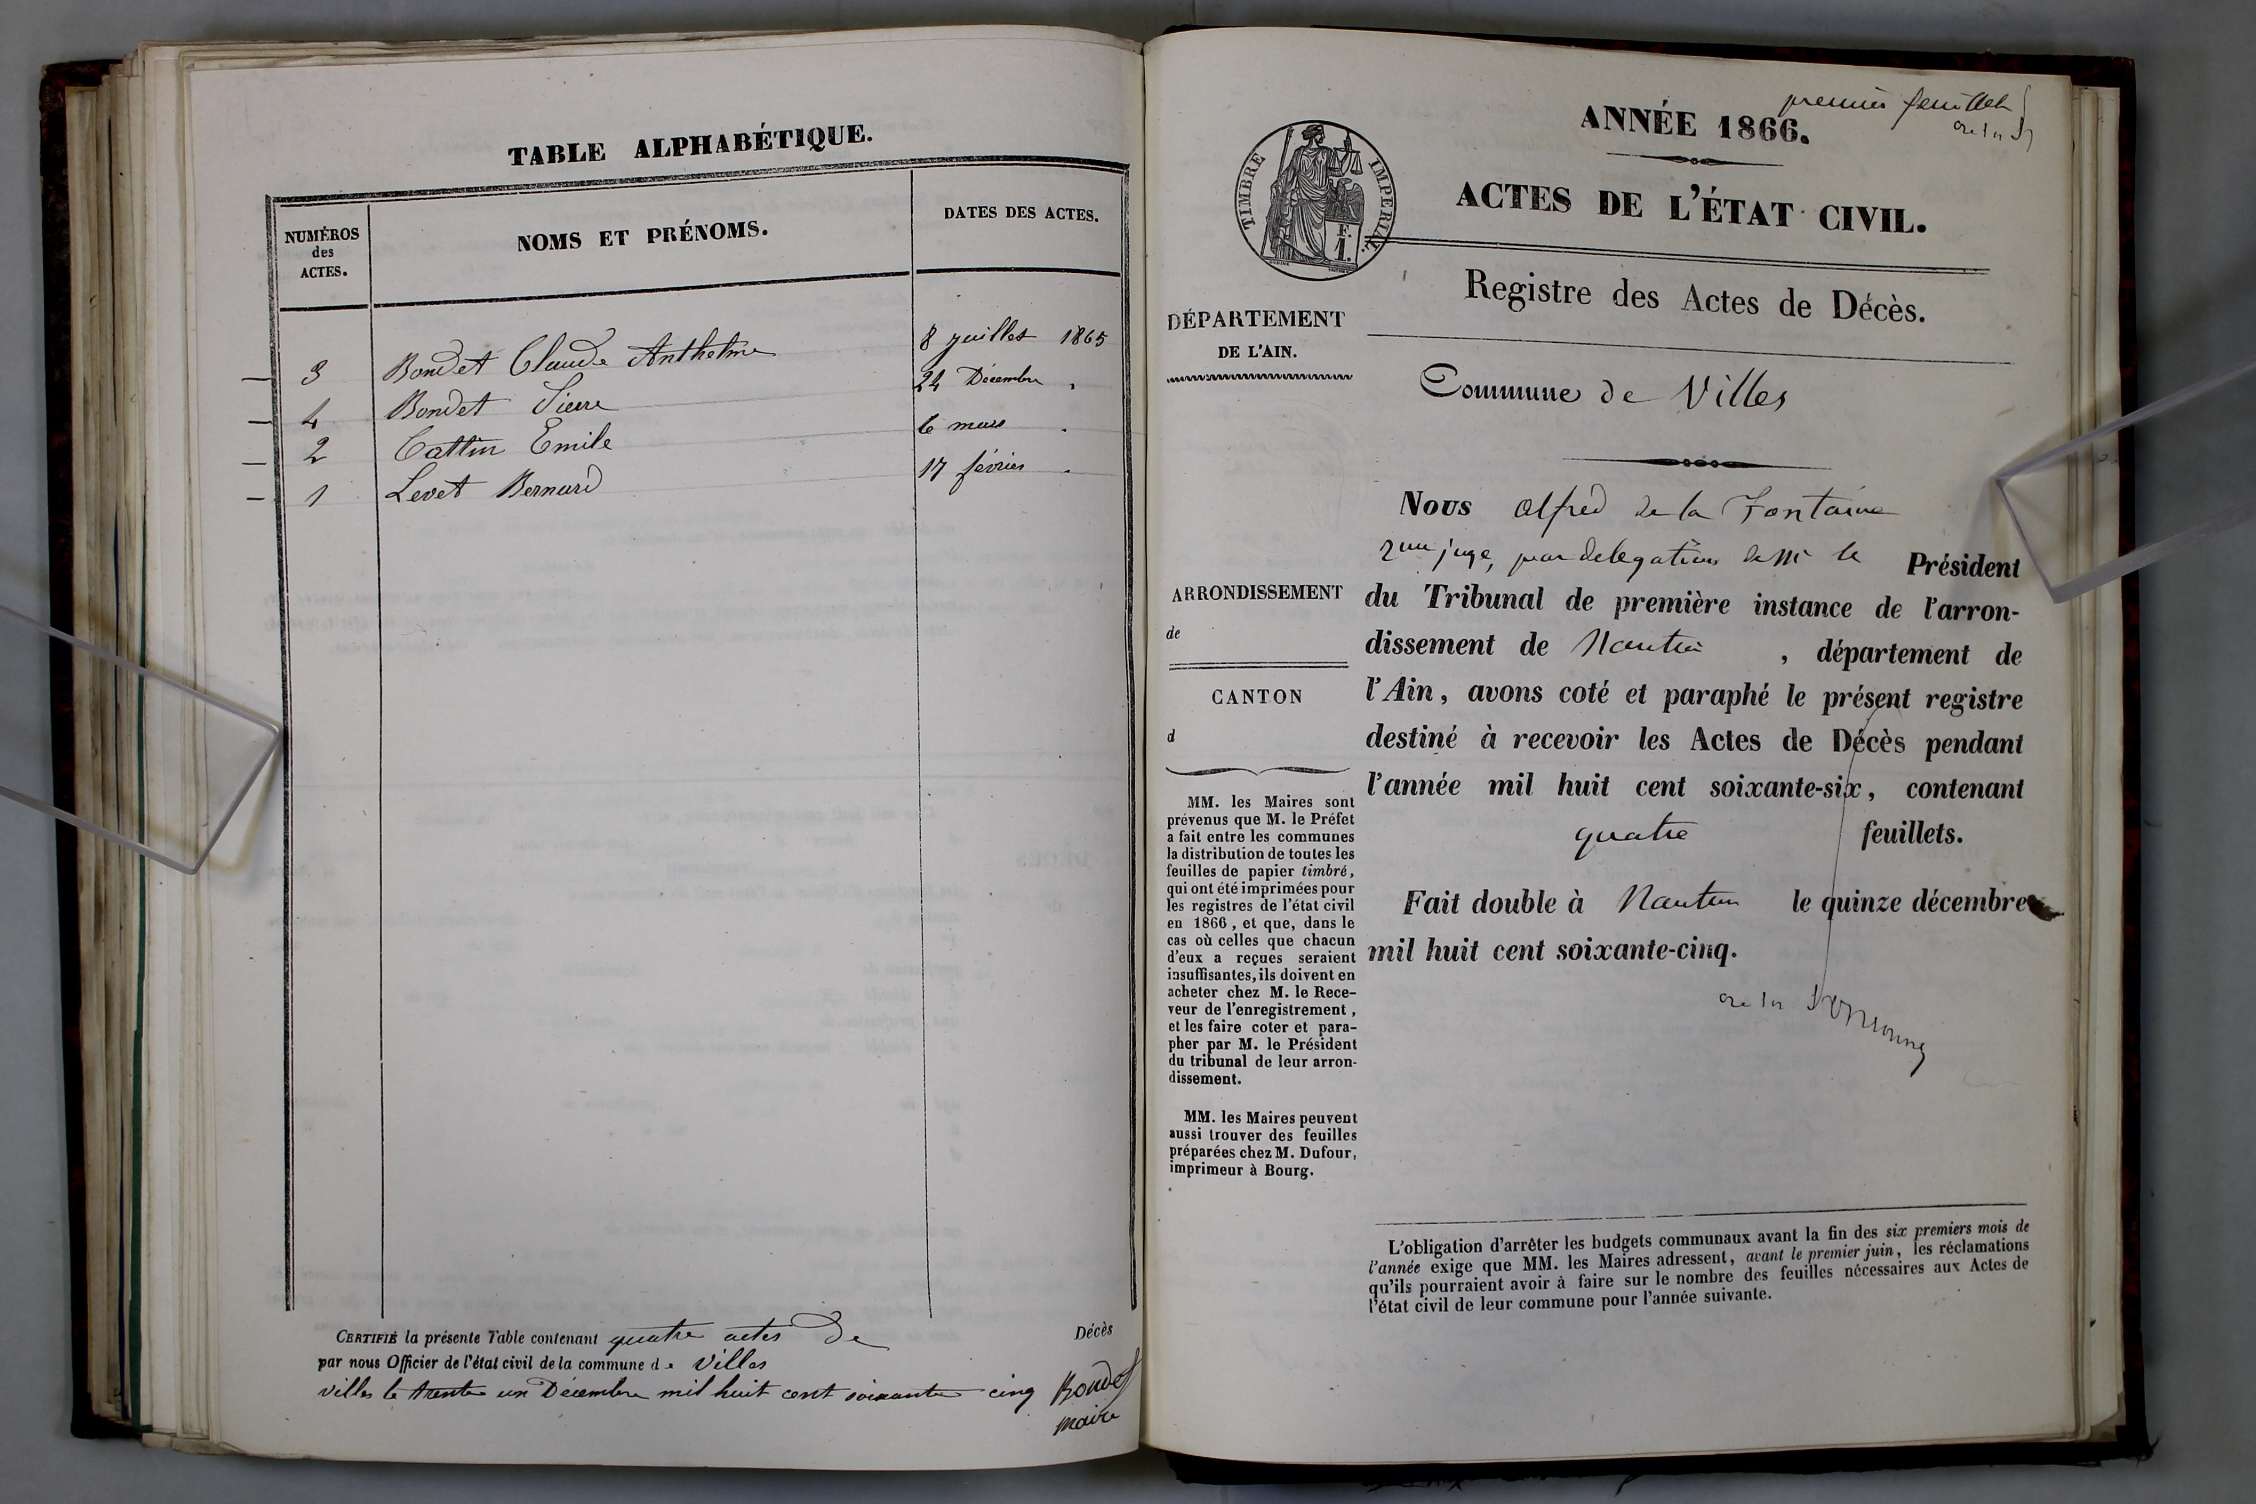 TABLE ALPHABÉTIQUE.
NUMÉROS
des
ACTES.
NOMS ET PRÉNOMS.
DATES DES ACTES.
3 Bondet Claude Anthelme 8 juillet 1865
4 Bondet Pierre 24 Décembre "
2 Cattin Emile 6 mars "
1 Levet Bernard 17 février "
CERTIFIÉ la présente Table contenant quatre actes de Décès
par nous Officier de l'état civil de la commune de Villes
villes le trente un Décembre mil huit cent soixante cinq Bondet
maire
premier feuillet
ANNÉE 1866.
TIMBRE IMPERIAL
F.
1.
ACTES DE L'ÉTAT CIVIL.
Registre des Actes de Décès.
DÉPARTEMENT
DE L'AIN.
Commune de Villes
ARRONDISSEMENT
de
CANTON
d
MM. les Maires sont
prévenus que M. le Préfet
a fait entre les communes
la distribution de toutes les
feuilles de papier timbré,
qui ont été imprimées pour
les registres de l'état civil
en 1866, et que, dans le
cas où celles que chacun
d'eux a reçues seraient
insuffisantes, ils doivent en
acheter chez M. le Rece-
veur de l'enregistrement,
et les faire coter et para-
pher par M. le Président
du tribunal de leur arron-
dissement.
MM. les Maires peuvent
aussi trouver des feuilles
préparées chez M. Dufour,
imprimeur à Bourg.
Nous Alfred de la Fontaine
juge, par delegation de Mr le Président
du Tribunal de première instance de l'arron-
dissement de Nantua, département de
l'Ain, avons coté et paraphé le présent registre
destiné à recevoir les Actes de Décès pendant
l'année mil huit cent soixante-six, contenant
quatre feuillets.
Fait double à Nantua le quinze décembre
mil huit cent soixante-cinq.
L'obligation d'arrêter les budgets communaux avant la fin des six premiers mois de
l'année exige que MM. les Maires adressent, avant le premier juin, les réclamations
qu'ils pourraient avoir à faire sur le nombre des feuilles nécessaires aux Actes de
l'état civil de leur commune pour l'année suivante.